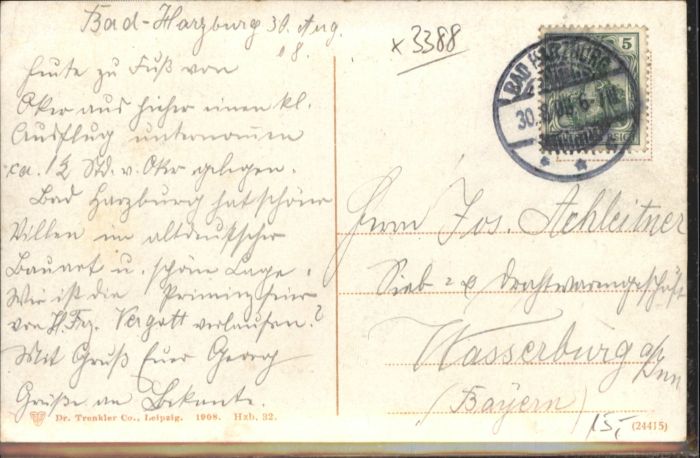 Bad-Harzburg 30. Aug.
08.
x 3388
Heute zu Fuß von
Oker aus hieher einen kl.
Ausflug unternommen
ca. 2 Std. v. Oker gelegen.
Bad Harzburg hat schöne
Villen im altdeutscher
Bauart u. schöne Lage.
Wie ist die Priminzfeier
von H. Frz. Vergott verlaufen?
Mit Gruß Euer Georg
Grüße an Bekannte.
5
BAD HARZBURG
30.8.08 6-7N
Herrn Jos. Achleitner
Sieb- u. Drahtwarengeschäft
Wasserburg a/Inn
(Bayern)
15,-
Dr. Trenkler Co., Leipzig. 1908. Hzb. 32.
(24415)